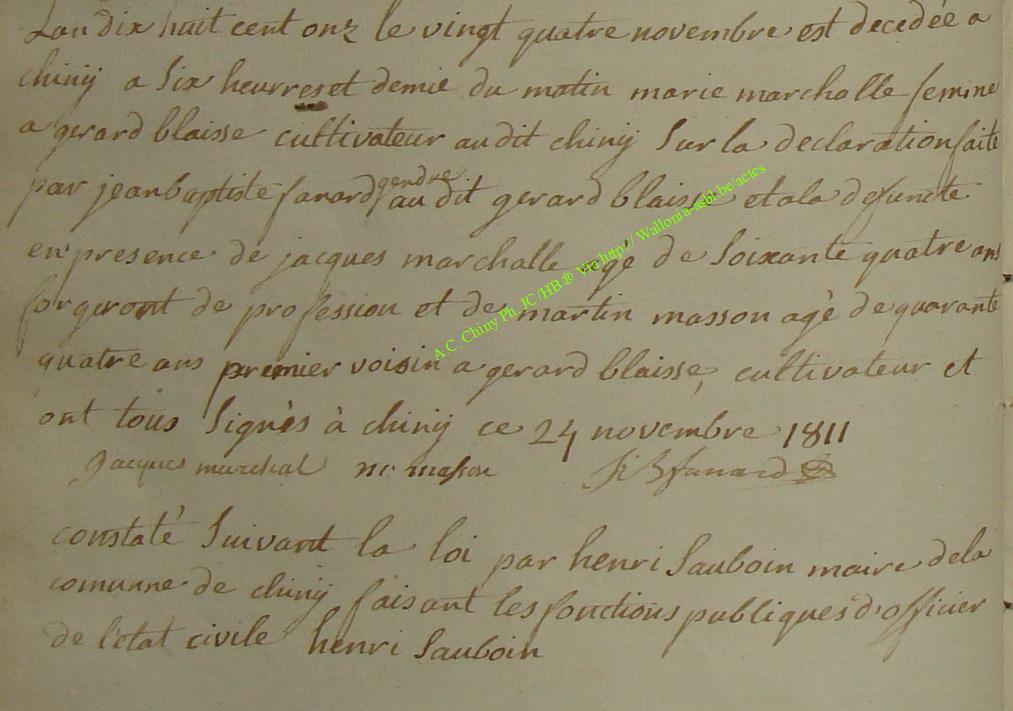 Lan dix huit cent onz le vingt quatre novembre est decedée a
chinij a Six heurres et demie du matin marie marchalle femme
a gerard blaisse cultivateur audit chinij Sur la declaration faite
par jean baptiste fanard gendre audit gerard blaisse et a la defuncte
en presence de jacques marchalle agé de Soixante quatre ans
forgeront de profession et de martin masson agé de quarante
quatre ans premier voisin a gerard blaisse, cultivateur et
ont tous Signés à chinij ce 24 novembre 1811
Jacques marechal m masson J B fanard
constaté Suivant la loi par henri Sauboin maire dela
comunne de chinij faisant les fonctions publiques d'officier
de l'etat civile henri Sauboin
A.C. Chiny Ph. JC/HB® Via http:// Wallonia-asbl.be/actes